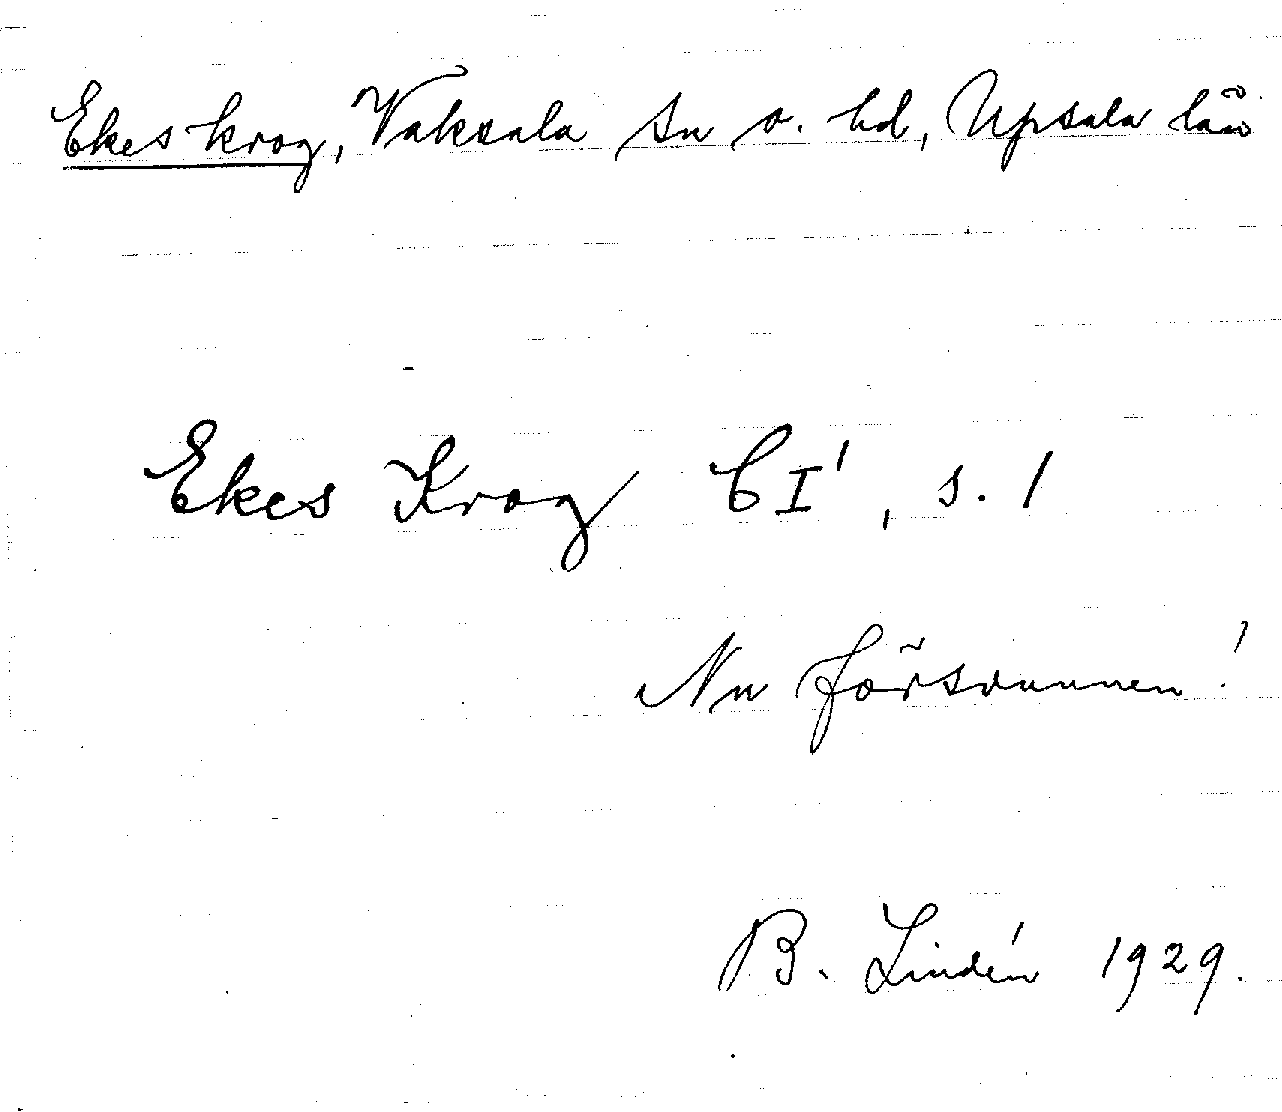 Ekes krog, Vaksala sn o. hd, Upsala län
Ekes Krog CI', s. 1
Nu försvunnen!
B. Lindén 1929.